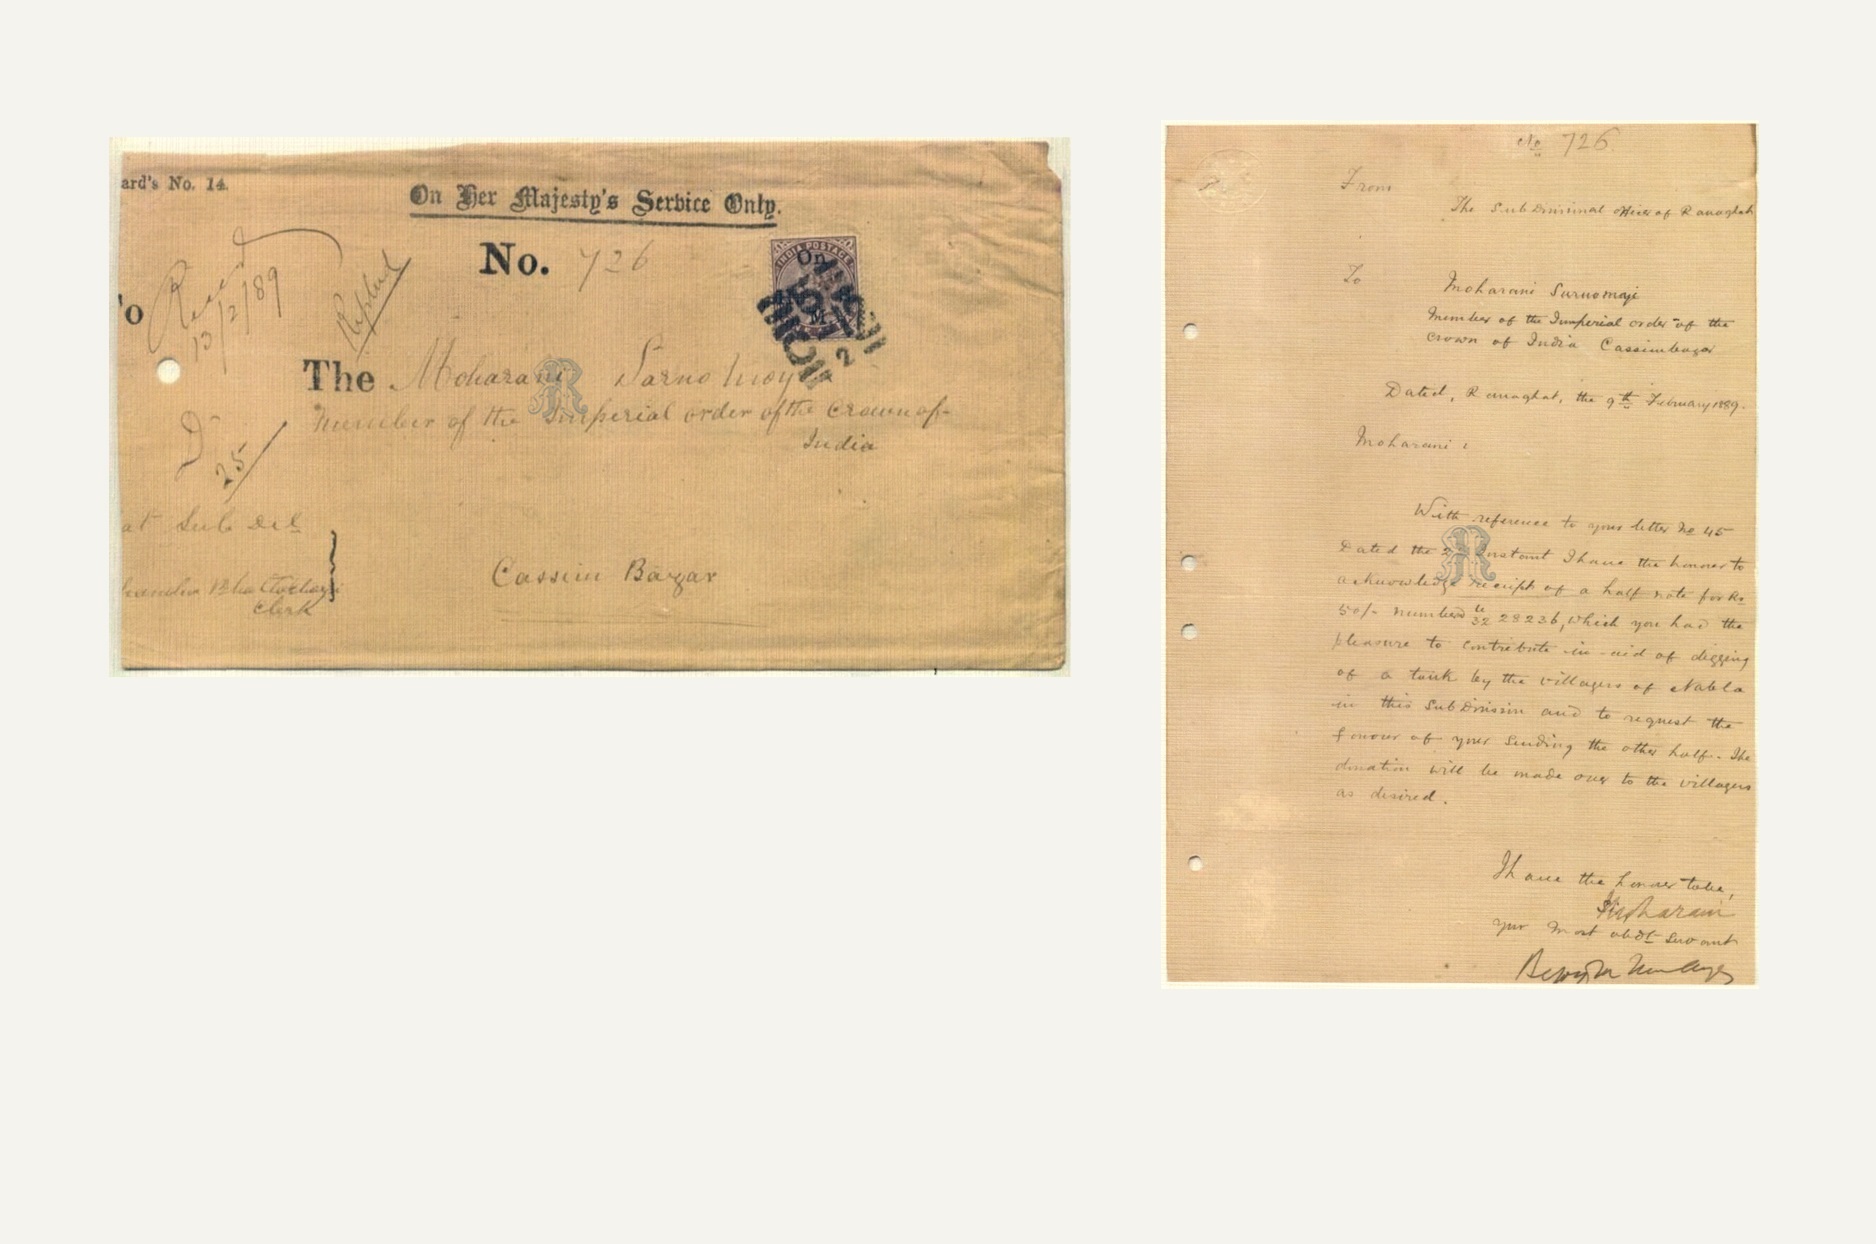 ard's No. 14.
On Her Majesty's Service Only.
No. 726
INDIA POSTAGE
On
M.
'o
Recd
13/2/89
Replied
The Moharani Sarno Moyi
Member of the Imperial order of the Crown of
India
D
25
at Sub Dil
Cassim Bazar
Clerk
R
No 726
From
The Sub Divisional officer of Ranaghat
To
Moharani Surnomoyi
Member of the Imperial order of the
Crown of India Cassimbazar
Dated, Ranaghat, the 9th February 1889.
Moharani,
With reference to your letter No 45
Dated the 2 instant I have the honour to
acknowledge receipt of a half note for Rs
50/- number 32 28236, which you had the
pleasure to contribute in aid of digging
of a tank by the villagers of Nabla
in this Sub Division and to request the
favour of your sending the other half. The
donation will be made over to the villagers
as desired.
R
I have the honor to be,
Moharani
Your Most obdt Servant